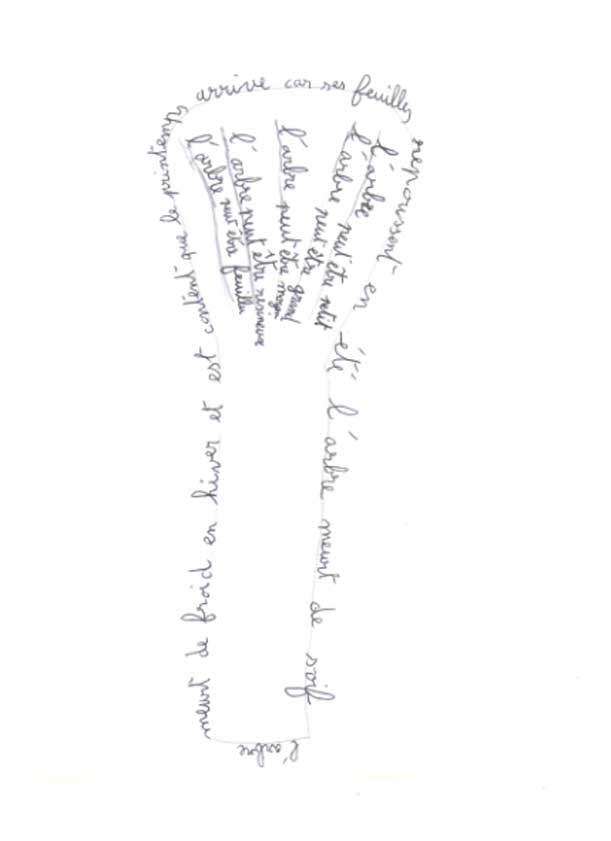 l'arbre meurt de froid en hiver et est content que le printemps arrive car ses feuilles repoussent en été l'arbre meurt de soif
l'arbre peut être feuillu
l'arbre peut être résineux
l'arbre peut être grand
être moyen
l'arbre peut être
l'arbre peut être petit